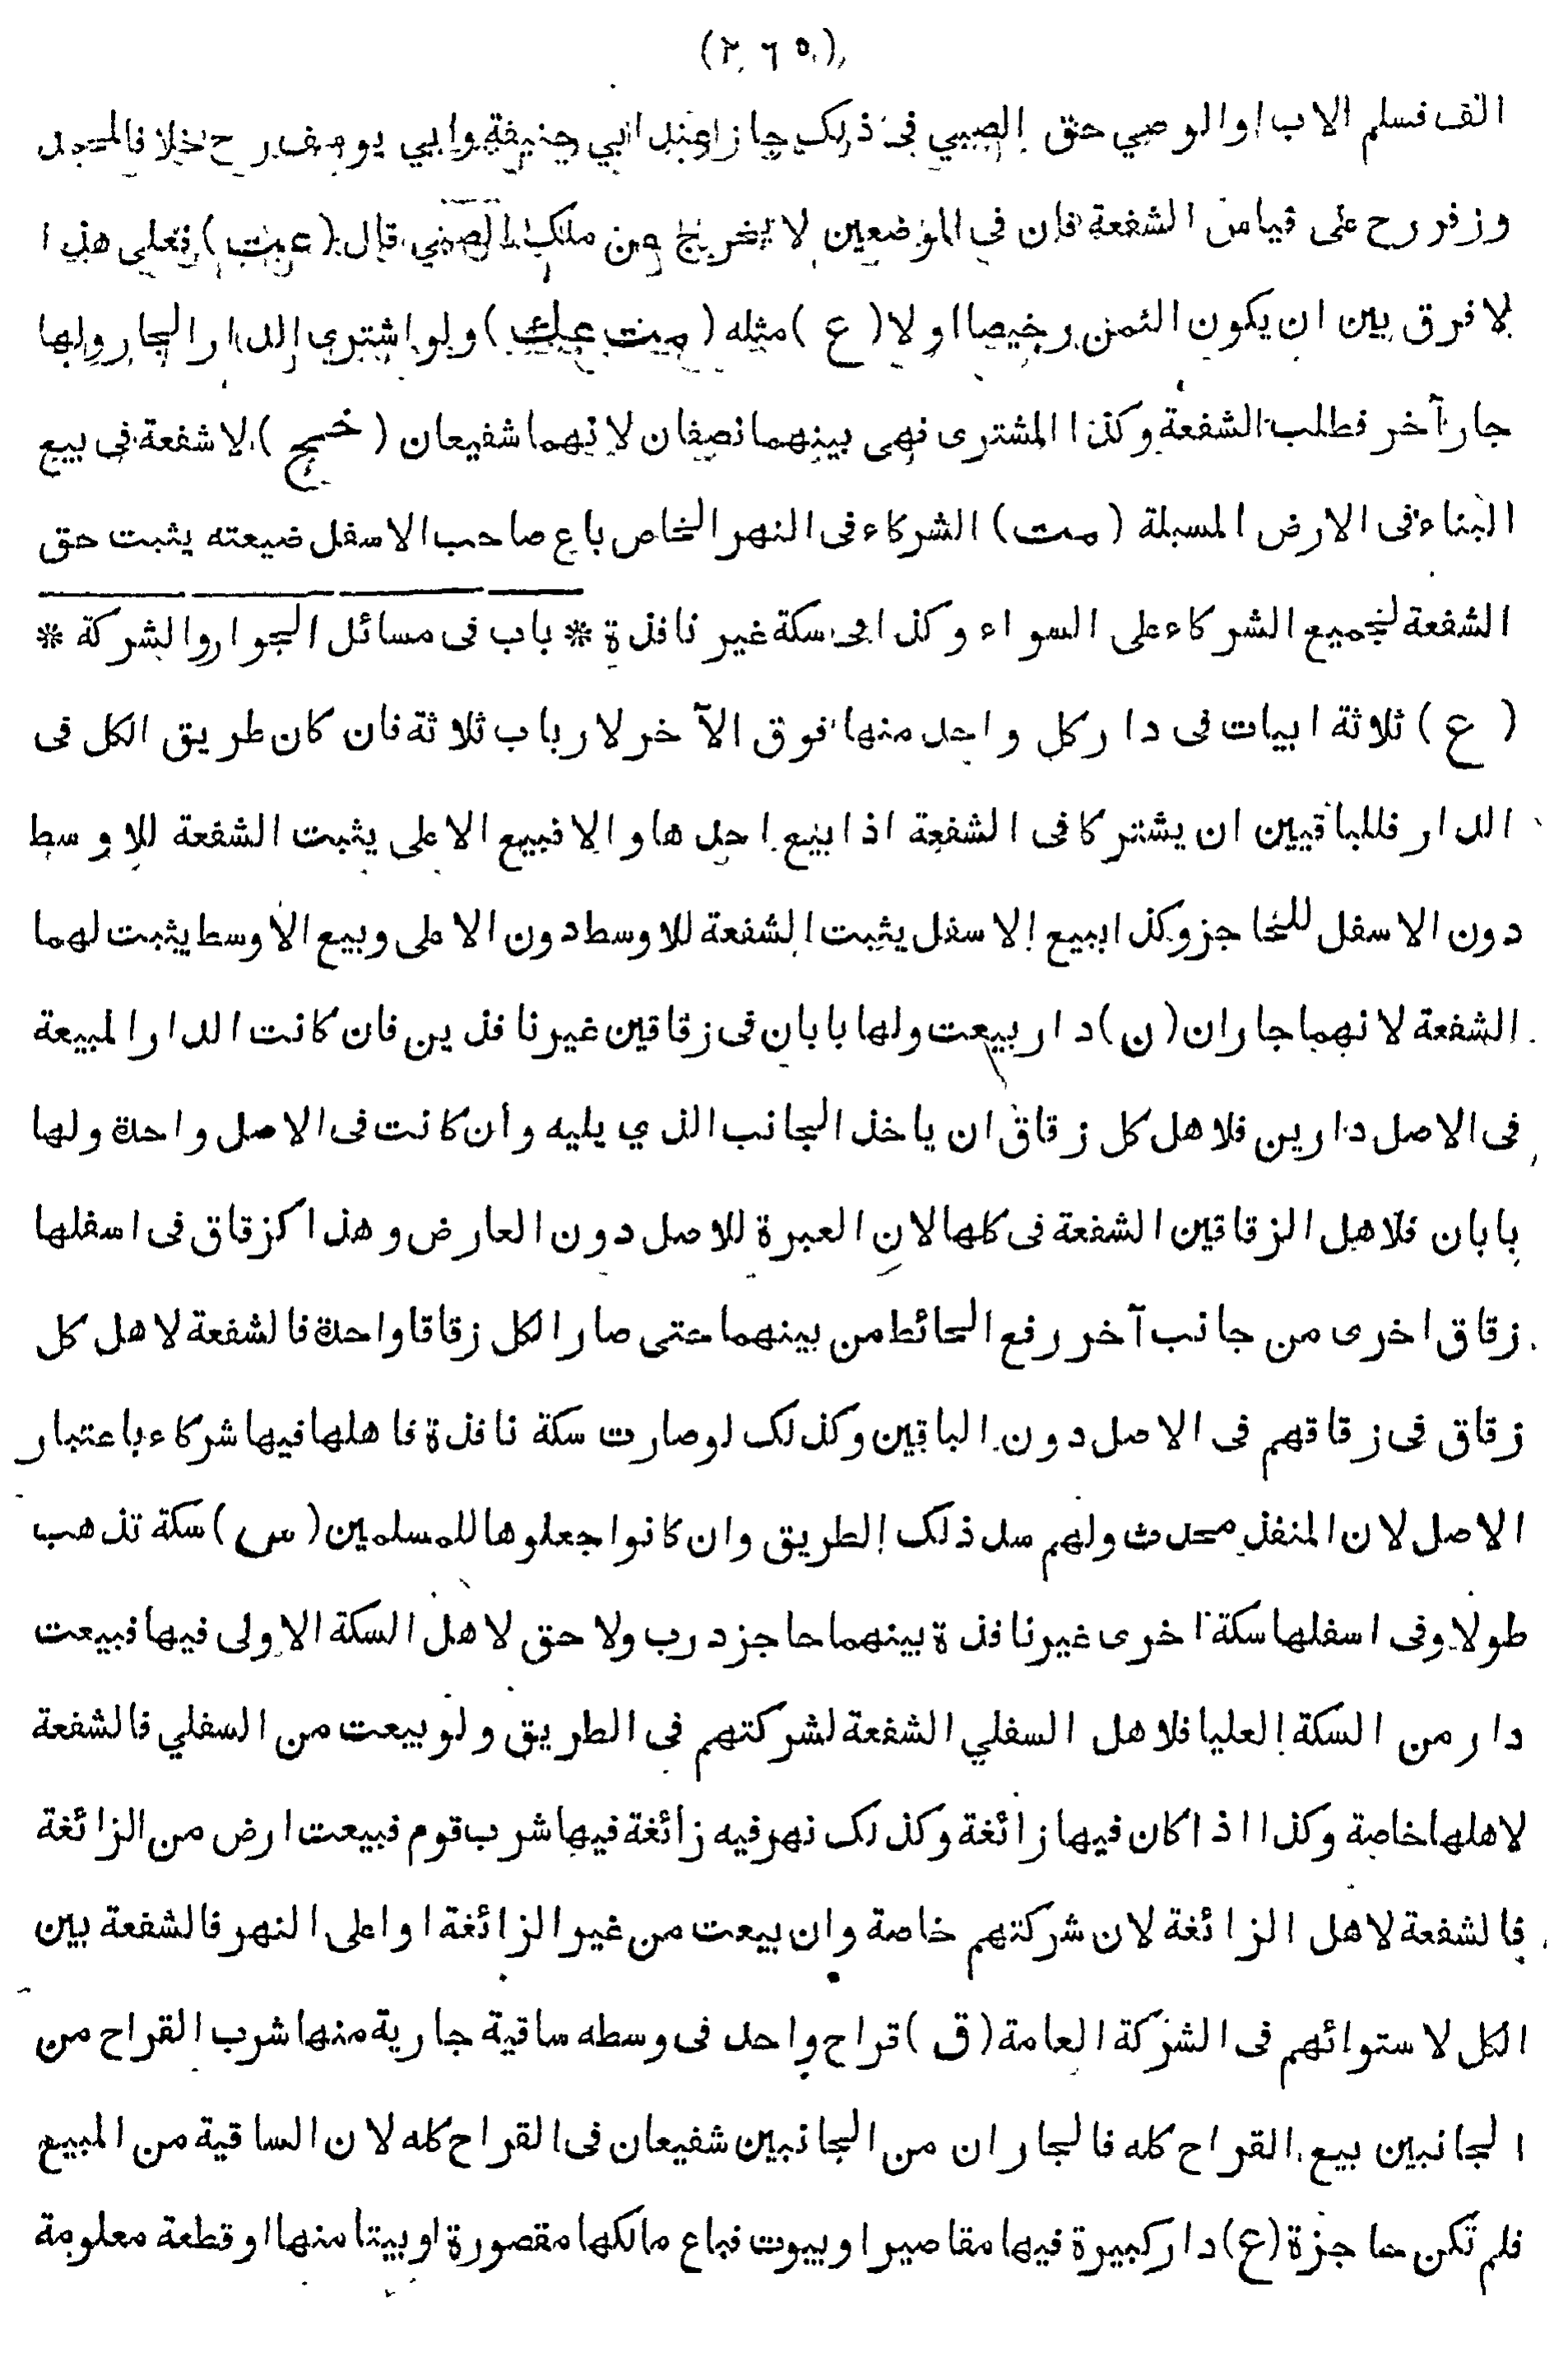 (٢٦٥)
الف فسلم الاب او الوصي حق الصبي فى ذلك جاز عند ابي حنيفة وابي يوسف رح خلافا لمحمد
وزفر رح على قياس الشفعة فان فى الموضعين لا يخرج من ملك الصبي قال (عبت) فعلى هذا
لا فرق بين ان يكون الثمن رخيصا او لا (ع) مثله (مت عك) ولو اشترى الدار الجار ولها
جار آخر فطلب الشفعة وكذا المشترى فهى بينهما نصفان لانهما شفيعان (خج) لا شفعة فى بيع
البناء فى الارض المسبلة (مت) الشركاء فى النهر الخاص باع صاحب الاسفل ضيعته يثبت حق
الشفعة لجميع الشركاء على السواء وكذا فى سكة غير نافذة * باب فى مسائل الجوار والشركة *
(ع) ثلاثة ابيات فى دار كل واحد منها فوق الآخر لارباب ثلاثة فان كان طريق الكل فى
الدار فللباقيين ان يشتركا فى الشفعة اذا بيع احدها والا فبيع الاعلى يثبت الشفعة للاوسط
دون الاسفل للحاجز وكذا بيع الاسفل يثبت الشفعة للاوسط دون الاعلى وبيع الاوسط يثبت لهما
الشفعة لانهما جاران (ن) دار بيعت ولها بابان فى زقاقين غير نافذين فان كانت الدار المبيعة
فى الاصل دارين فلاهل كل زقاق ان ياخذ الجانب الذي يليه وان كانت فى الاصل واحدة ولها
بابان فلاهل الزقاقين الشفعة فى كلها لان العبرة للاصل دون العارض وهذا كزقاق فى اسفلها
زقاق اخرى من جانب آخر رفع الحائط من بينهما حتى صار الكل زقاقا واحدة فالشفعة لاهل كل
زقاق فى زقاقهم فى الاصل دون الباقين وكذلك لو صارت سكة نافذة فاهلها فيها شركاء باعتبار
الاصل لان المنفذ محدث ولهم سد ذلك الطريق وان كانوا جعلوها للمسلمين (س) سكة تذهب
طولا وفى اسفلها سكة اخرى غير نافذة بينهما حاجز درب ولا حق لاهل السكة الاولى فيها فبيعت
دار من السكة العليا فلاهل السفلي الشفعة لشركتهم فى الطريق ولو بيعت من السفلي فالشفعة
لاهلها خاصة وكذا اذا كان فيها زائغة وكذلك نهر فيه زائغة فيها شرب قوم فبيعت ارض من الزائغة
فالشفعة لاهل الزائغة لان شركتهم خاصة وان بيعت من غير الزائغة او اعلى النهر فالشفعة بين
الكل لاستوائهم فى الشركة العامة (ق) قراح واحد فى وسطه ساقية جارية منها شرب القراح من
الجانبين بيع القراح كله فالجاران من الجانبين شفيعان فى القراح كله لان الساقية من المبيع
فلم تكن حاجزة (ع) دار كبيرة فيها مقاصير او بيوت فباع مالكها مقصورة او بيتا منها او قطعة معلومة